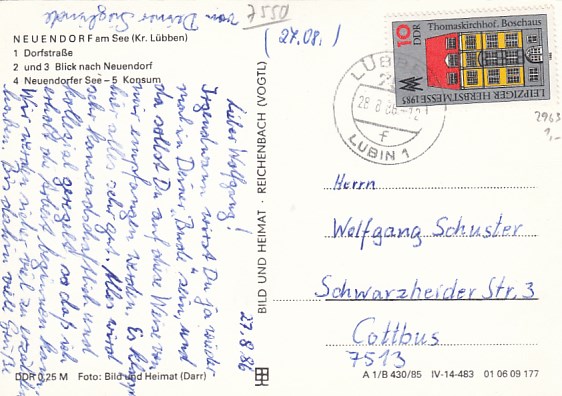 von Deiner Sieglinde
7550
(27.08.)
NEUENDORF am See (Kr. Lübben)
1 Dorfstraße
2 und 3 Blick nach Neuendorf
4 Neuendorfer See – 5 Konsum
27.8.86
Lieber Wolfgang!
Irgendwann wirst Du ja wieder
mal in Deiner "Bude" sein, und
da sollst Du auf diese Weise von
mir empfangen werden. Es klappt
hier alles sehr gut. Alles wird
sehr kameradschaftlich und
kollegial geregelt, so daß ich
erholt die Arbeit beginnen kann.
Wir werden sicher viel zu erzählen
haben. Bis dahin viele Grüße
DDR 0,25 M Foto: Bild und Heimat (Darr)
BILD UND HEIMAT · REICHENBACH (VOGTL)
10
DDR
Thomaskirchhof, Boschaus
LEIPZIGER HERBSTMESSE 1985
LÜBBEN
28.8.86-12
f
LUBIN 1
2963
1,-
Herrn
Wolfgang Schuster
Schwarzheider Str. 3
Cottbus
7513
A 1/B 430/85 IV-14-483 01 06 09 177